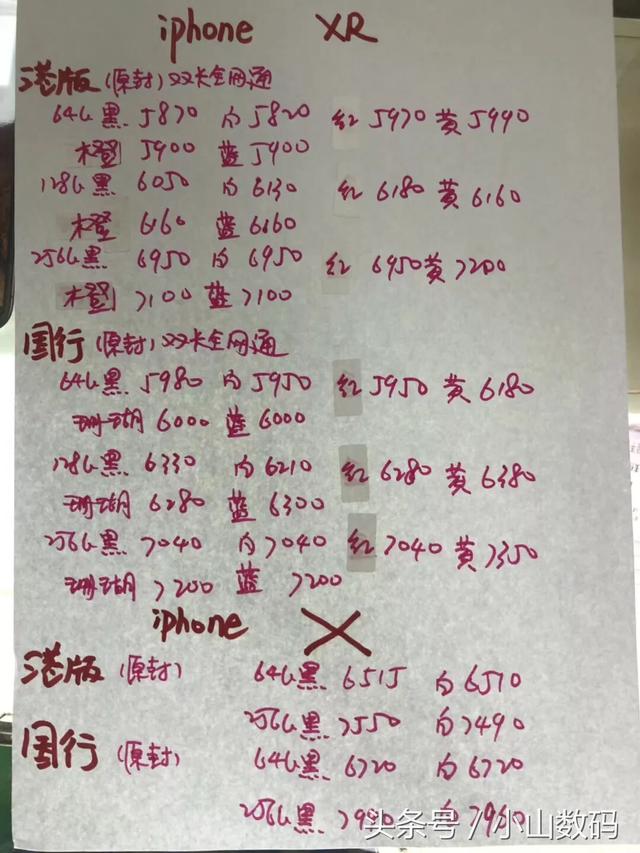 iphone XR
港版(原封)双卡全网通
64G黑 5870 白5820 红5970 黄5990
橙 5900 蓝5900
128G黑 6050 白6130 红 6180 黄6160
橙 6160 蓝6160
256G黑 6950 白6950 红 6950 黄7200
橙 7100 蓝7100
国行(原封)双卡全网通
64G黑 5980 白5950 红5950 黄6180
珊瑚 6000 蓝6000
128G黑 6330 白6210 红6280 黄6380
珊瑚 6280 蓝6300
256G黑 7040 白7040 红7040 黄7350
珊瑚 7200 蓝 7200
iphone X
港版(原封) 64G黑 6515 白6510
256G黑 7550 白7490
国行(原封) 64G黑 6720 白6720
256G黑 白
头条号/小山数码